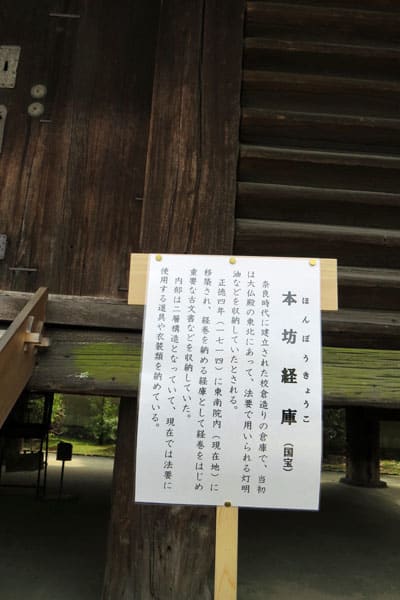 ほんぼうきょうこ
本坊経庫(国宝)
奈良時代に建立された校倉造りの倉庫で、当初
は大仏殿の東北にあって、法要で用いられる灯明
油などを収納していたとされる。
正徳四年(一七一四)に東南院内(現在地)に
移築され、経巻を納める経庫として経巻をはじめ
重要な古文書などを収納していた。
内部は二層構造となっていて、現在では法要に
使用する道具や衣装類を納めている。